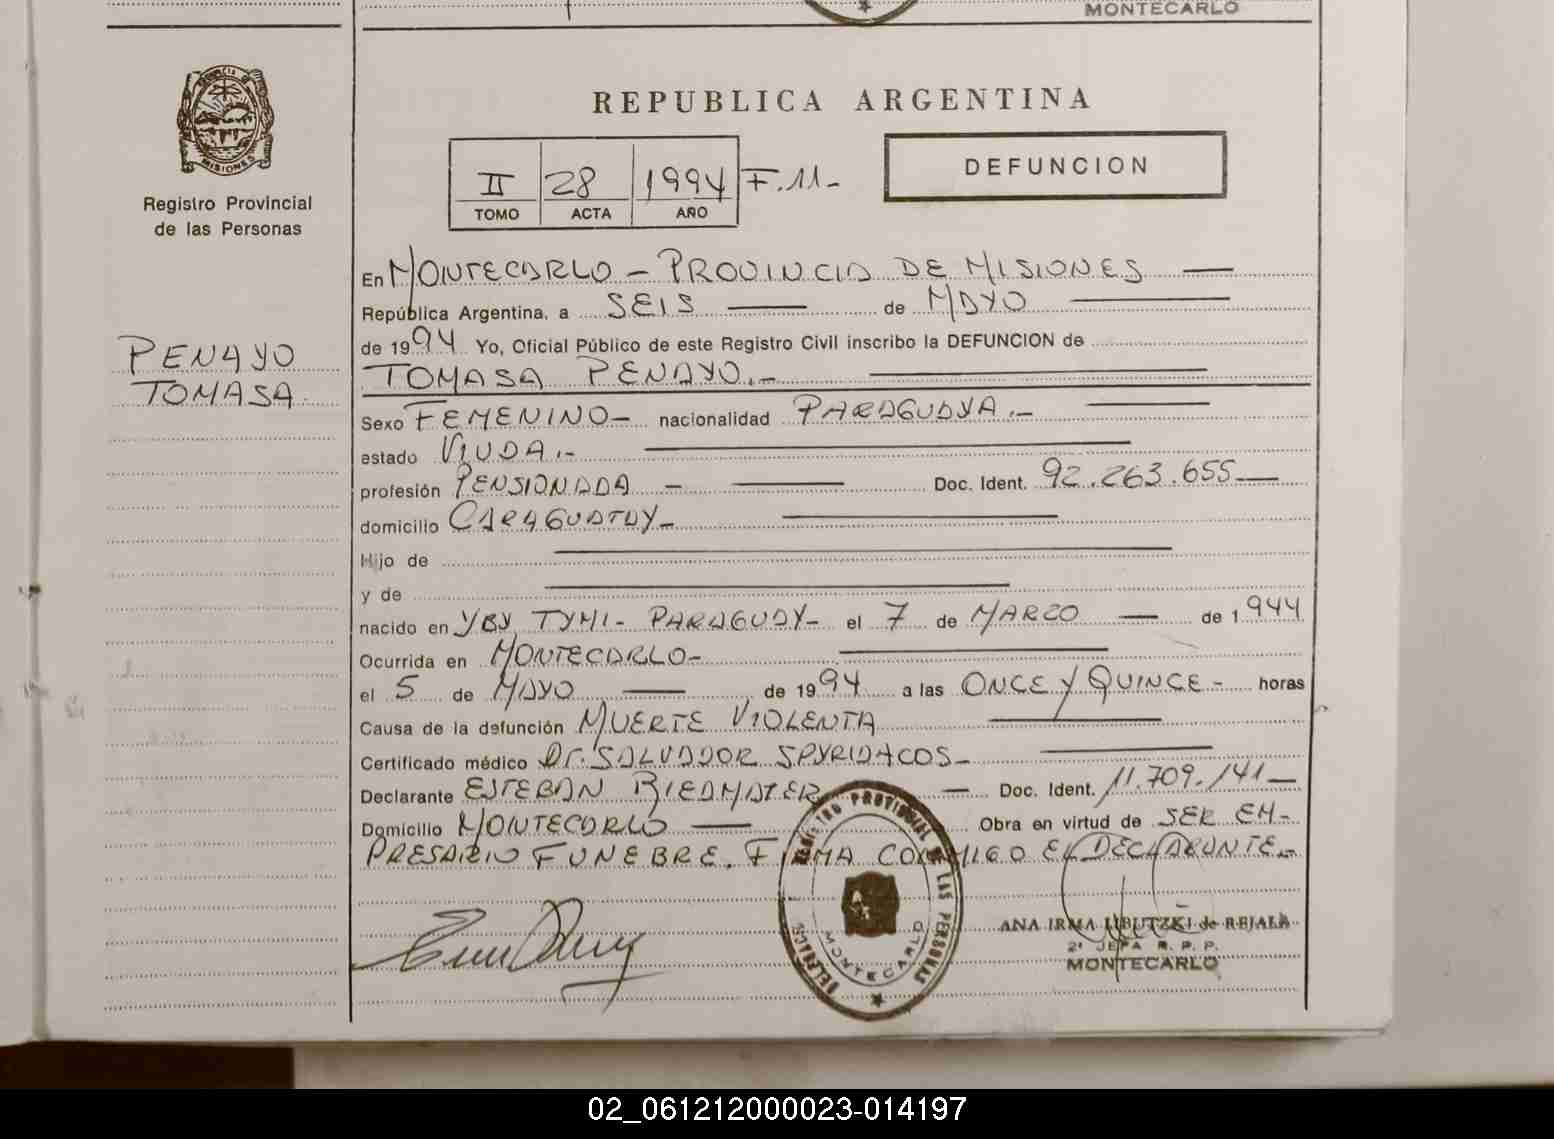 MONTECARLO
PROVINCIA DE
MISIONES
Registro Provincial
de las Personas
REPUBLICA ARGENTINA
II 28 1994 F.11-
TOMO ACTA AÑO
DEFUNCION
En MONTECARLO - PROVINCIA DE MISIONES
República Argentina, a SEIS de MAYO
de 1994 Yo, Oficial Público de este Registro Civil inscribo la DEFUNCION de
PENAYO
TOMASA
TOMASA PENAYO.-
Sexo FEMENINO- nacionalidad PARAGUAYA.-
estado VIUDA.-
profesión PENSIONADA - Doc. Ident. 92.263.655
domicilio CARAGUATAY-
Hijo de
y de
nacido en YBY TYMI- PARAGUAY- el 7 de MARZO de 1944
Ocurrida en MONTECARLO-
el 5 de MAYO de 1994 a las ONCE Y QUINCE- horas
Causa de la defunción MUERTE VIOLENTA
Certificado médico Dr. SALVADOR SPYRIDACOS-
Declarante ESTEBAN Doc. Ident. 11.709.141-
Domicilio MONTECARLO Obra en virtud de SER EM-
PRESARIO FUNEBRE. FIRMA CONMIGO EL DECLARANTE.-
REGISTRO PROVINCIAL DE LAS PERSONAS
MONTECARLO
ANA IRMA LIBUTZKI de REJALA
2ª JEFA R. P. P.
MONTECARLO
02_061212000023-014197